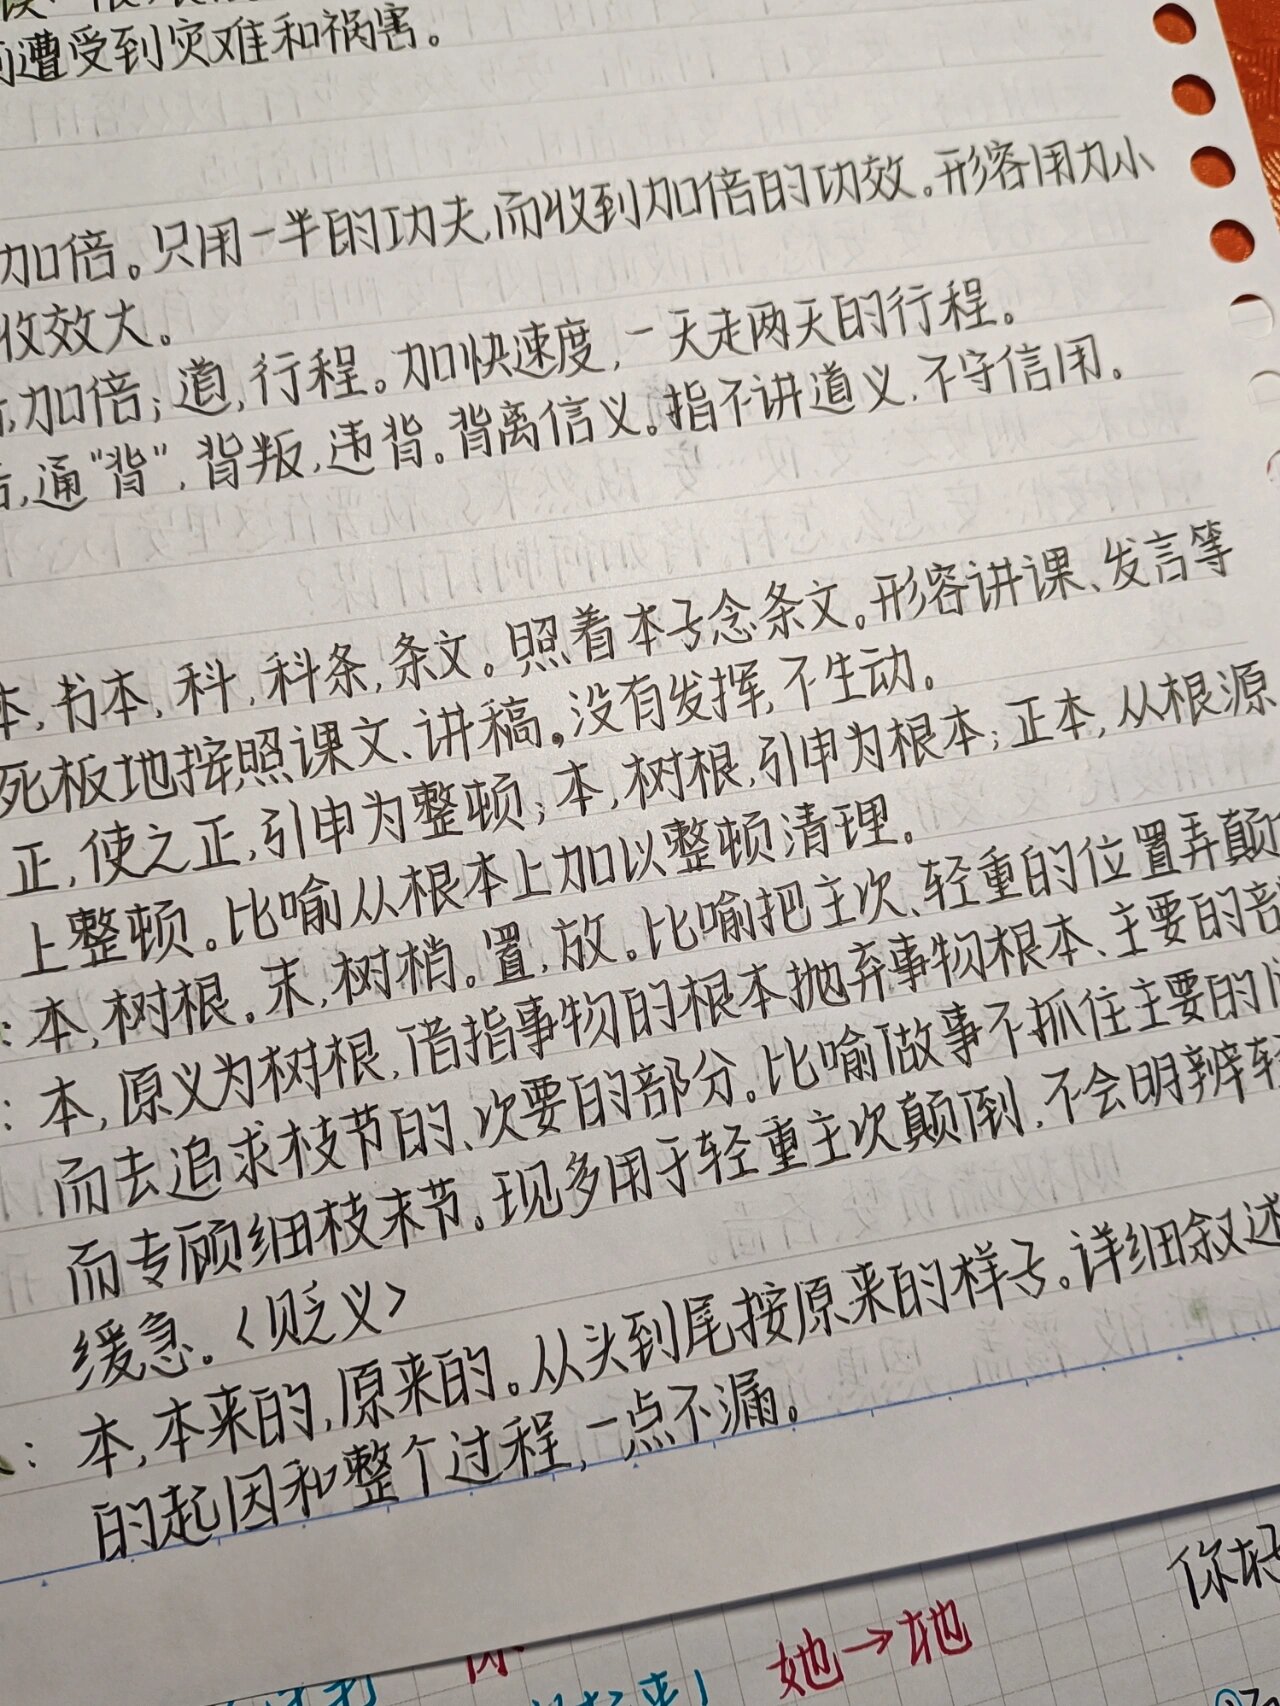 遭受到灾难和祸害。
加倍。只用一半的功夫,而收到加倍的功效。形容用力小
收效大。
加倍;道,行程。加快速度,一天走两天的行程。
,通"背",背叛,违背。背离信义。指不讲道义,不守信用。
本,书本,科,科条,条文。照着本子念条文。形容讲课、发言等
死板地按照课文、讲稿。没有发挥,不生动。
正,使之正,引申为整顿;本,树根,引申为根本;正本,从根源
上整顿。比喻从根本上加以整顿清理。
:本,树根。末,树梢。置,放。比喻把主次、轻重的位置弄颠
:本,原义为树根,借指事物的根本抛弃事物根本、主要的部
而去追求枝节的、次要的部分。比喻做事不抓住主要的
而专顾细枝末节。现多用于轻重主次颠倒,不会明辨轻
缓急。<贬义>
:本,本来的,原来的。从头到尾按原来的样子。详细叙述
的起因和整个过程,一点不漏。
你好
她→地